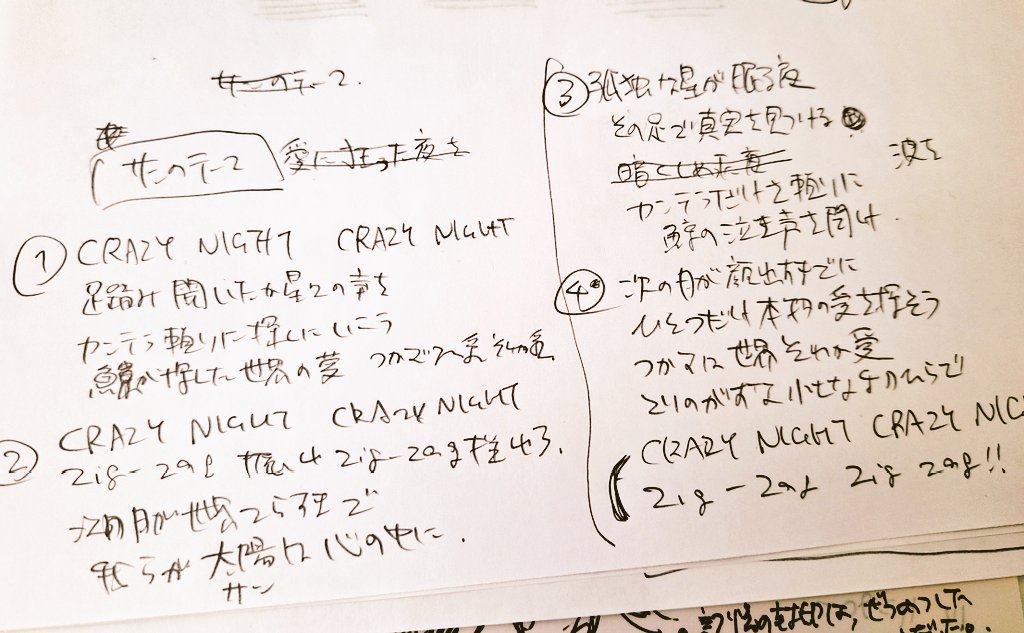 サンのテーマ
サンのテーマ
愛に狂った夜を
① CRAZY NIGHT CRAZY NIGHT
足踏み 聞いたか星々の声を
カンテラ頼りに探しにいこう
鯨が探した世界の夢
② CRAZY NIGHT CRAZY NIGHT
zig-zag zig-zag
月が世界てらすまで
我らが太陽は心の中に.
サン
③ 孤独な星が眠る夜
その足で真実を見つける
波を
カンテラだけを頼りに
鯨の泣き声を聞け.
④ 次の月が顔出すまでに
ひとつだけ本物の愛を探そう
つかむは世界 それか愛
とりのがすな 小さな手のひらで
CRAZY NIGHT CRAZY NIG
zig-zag zig zag!!